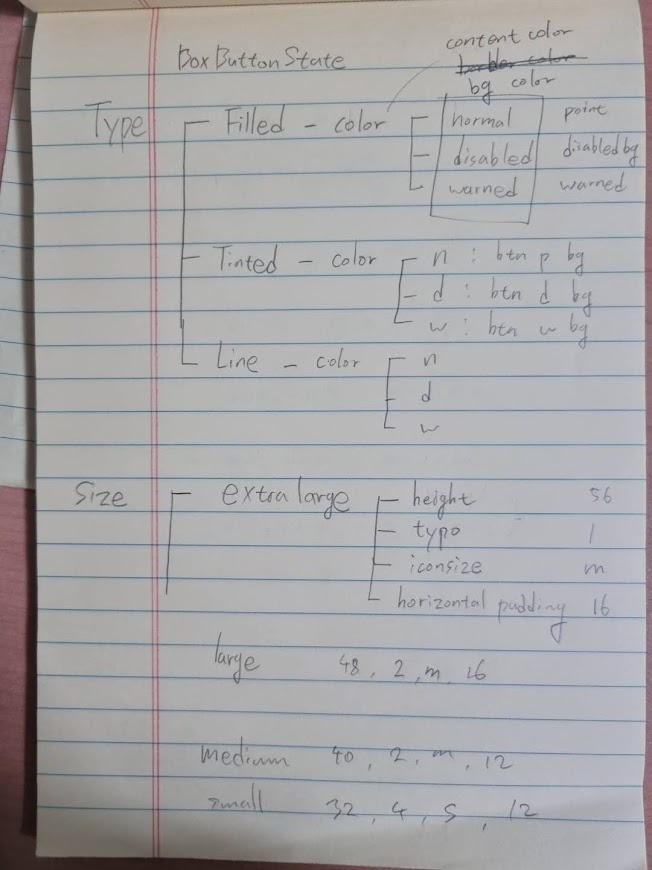 BoxButtonState
content color
border color
bg color
Type
Filled - color
normal point
disabled disabled bg
warned warned
Tinted - color
n : btn p bg
d : btn d bg
w : btn w bg
Line - color
n
d
w
Size
extra large
height 56
typo 1
iconsize m
horizontal padding 16
large 48, 2, m, 16
medium 40, 2, m, 12
small 32, 4, s, 12